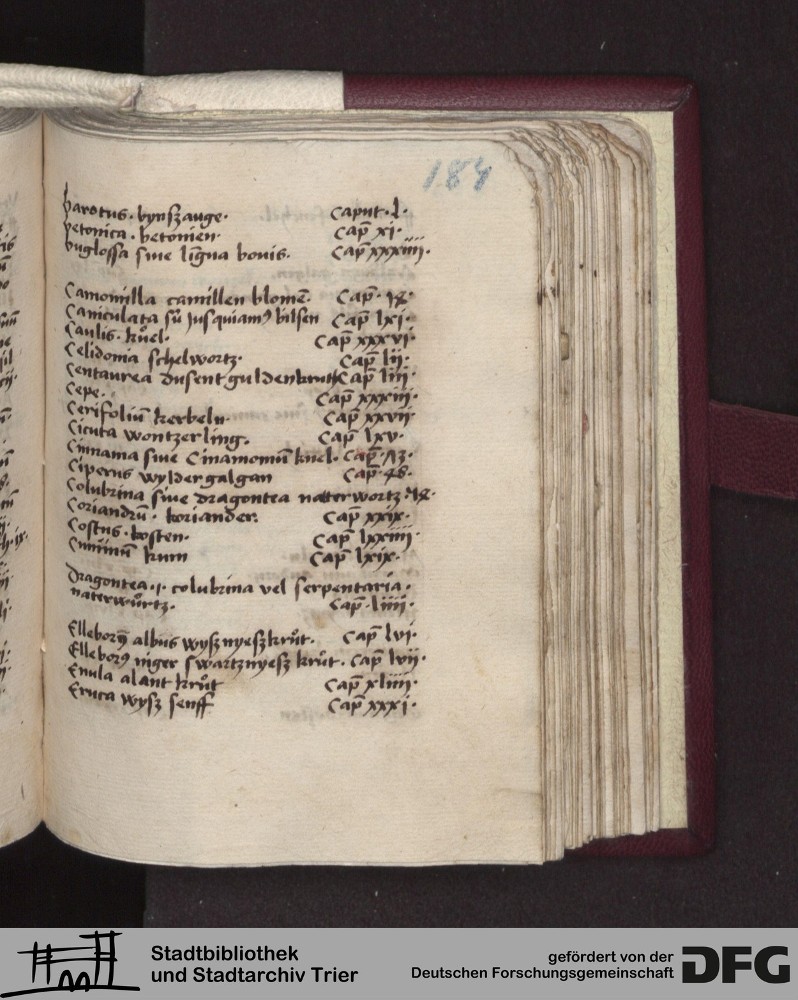 184
barotus. bynsz auge. Caput. l.
betonica. betonien. Cap̄ xi.
buglossa siue lingua bouis. Cap̄ xxxiiii.
Camomilla camillen blomē. Cap̄
Caniculata iusquiam9 bilsen Cap̄ lxi.
Caulis. kůel. Cap̄ xxxvi.
Celidonia schelwortz. Cap̄ lii.
Centaurea dusent gulden krutt Cap̄ liii.
Cepe. Cap̄ xxxiii.
Cerifoliū kerbeln. Cap̄ xxvii.
Cicuta wontzerling. Cap̄ lxv.
Cinnama siue Cinamomū knel. Cap̄
Ciperus wylder galgan Cap̄ 48.
Colubrina siue dragontea natter wortz.
Coriandrū. koriander. Cap̄ xxix.
Costus. kosten. Cap̄ lxxiiii.
Cuminū kum Cap̄ lxix.
Dragontea .i. colubrina vel serpentaria.
naterwůrtz. Cap̄ liiii.
Elleborꝰ albus wysz nyesz krůt. Cap̄ lvi.
Elleborꝰ niger swartz nyesz krůt. Cap̄ lvii.
Enula alant krůt Cap̄ xliiii.
Eruca wysz senff Cap̄ xxxi.
Stadtbibliothek
und Stadtarchiv Trier
gefördert von der
Deutschen Forschungsgemeinschaft
DFG